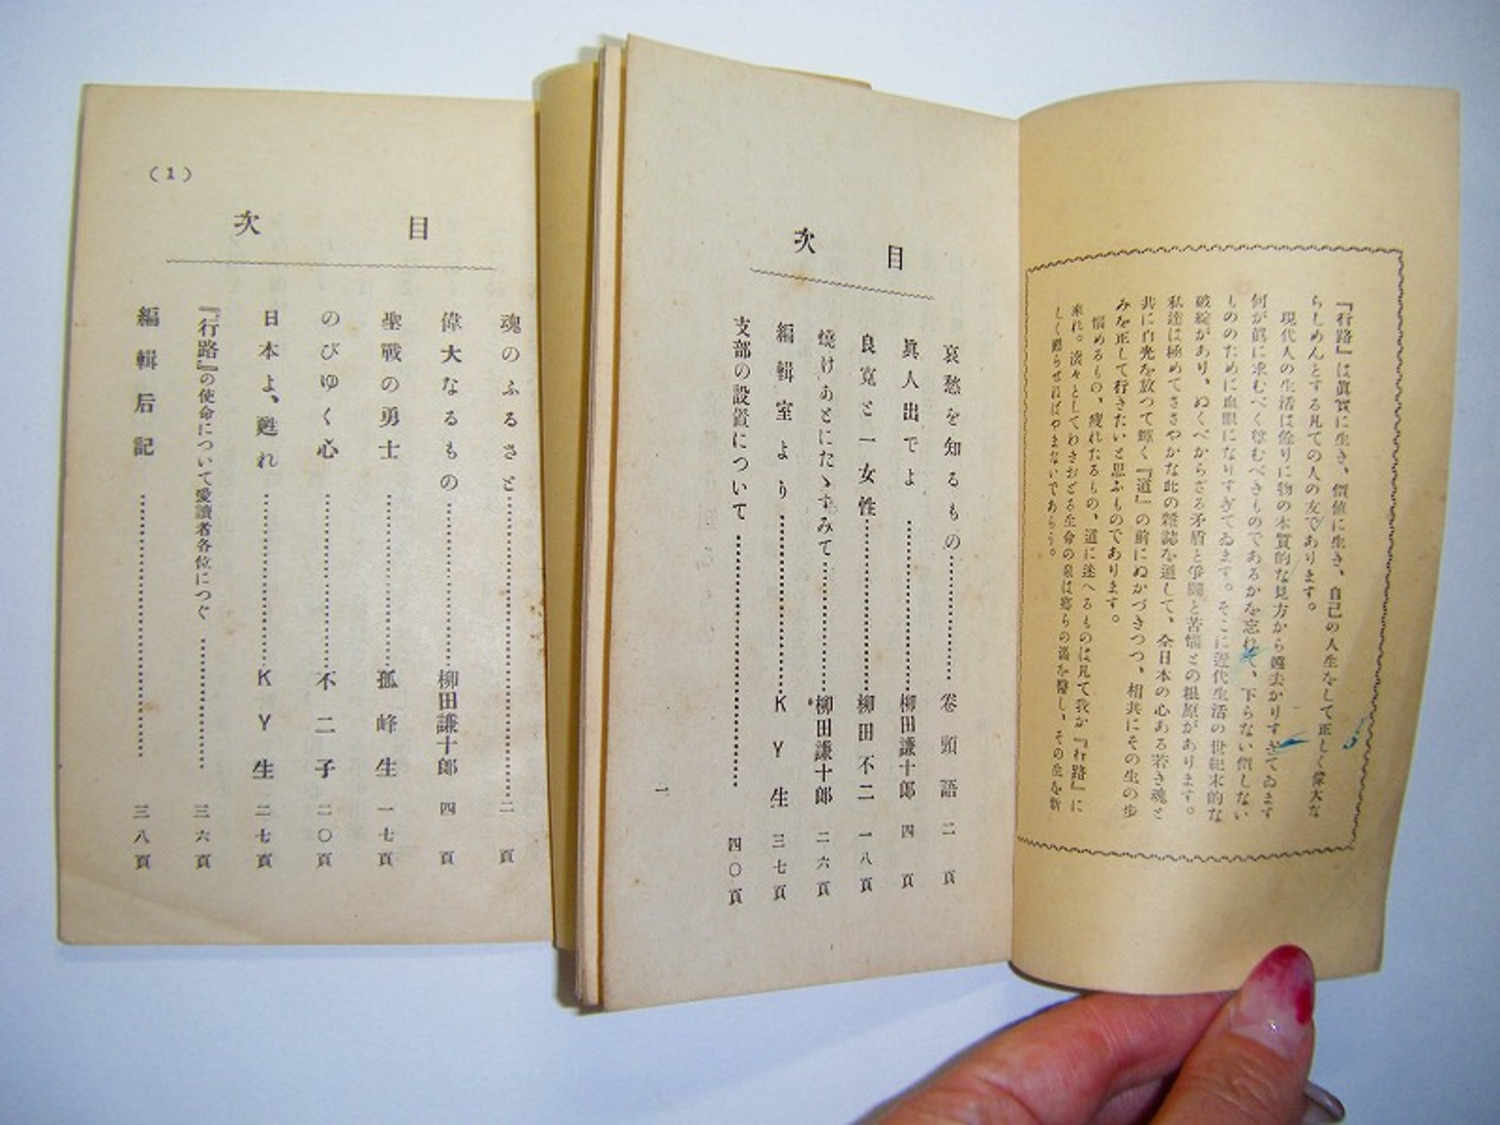 『行路』は眞實に生き、價値に生き、自己の人生をして正しく偉大な
らしめんとする凡ての人の友であります。
現代人の生活は餘りに物の本質的な見方から遠去かりすぎてゐます
何が眞に求むべく尊むべきものであるかを忘れて、下らない價しない
もののために血眼になりすぎてゐます。そこに近代生活の世紀末的な
破綻があり、ぬくべからざる矛盾と爭鬪と苦惱との根原があります。
私達は極めてささやかな此の雜誌を通して、全日本の心ある若き魂と
共に白光を放つて輝く『道』の前にぬかづきつつ、相共にその生の歩
みを正して行きたいと思ふものであります。
惱めるもの、疲れたるもの、道に迷へるものは凡て我が『行路』に
來れ。滾々としてわきおどる生命の泉は鄕らの渴を醫し、その生を新
しく甦らせねばやまないであらう。
目 次
哀愁を知るもの………卷頭語 二頁
眞人出でよ………柳田謙十郎 四頁
良寬と一女性………柳田不二 一八頁
燒けあとにたゝずみて………柳田謙十郎 二六頁
編輯室より………KY生 三七頁
支部の設置について………四〇頁
一
(1)
目 次
魂のふるさと………二頁
偉大なるもの………柳田謙十郎 四頁
聖戰の勇士………孤峰生 一七頁
のびゆく心………不二子 二〇頁
日本よ、甦れ………KY生 二七頁
『行路』の使命について愛讀者各位につぐ………三六頁
編輯后記………三八頁